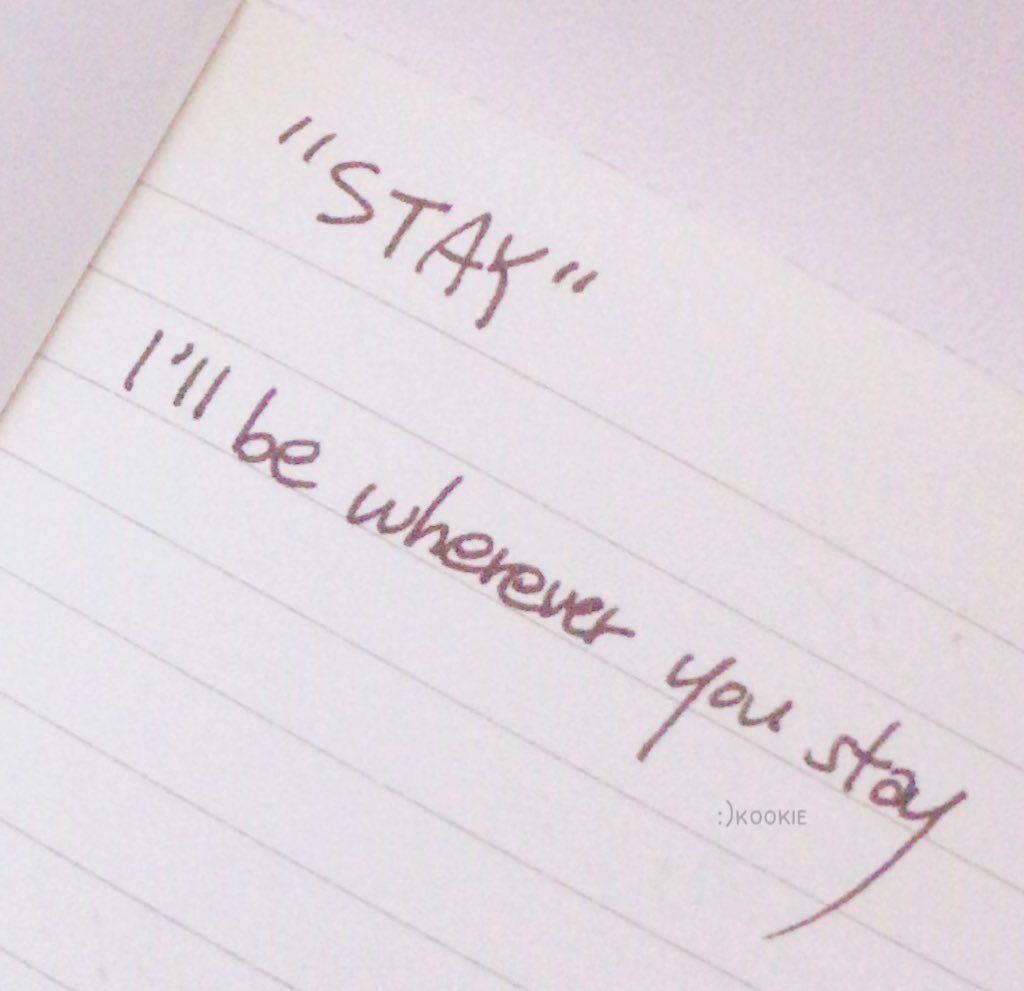 "STAY"
I'll be wherever you stay
:)KOOKIE